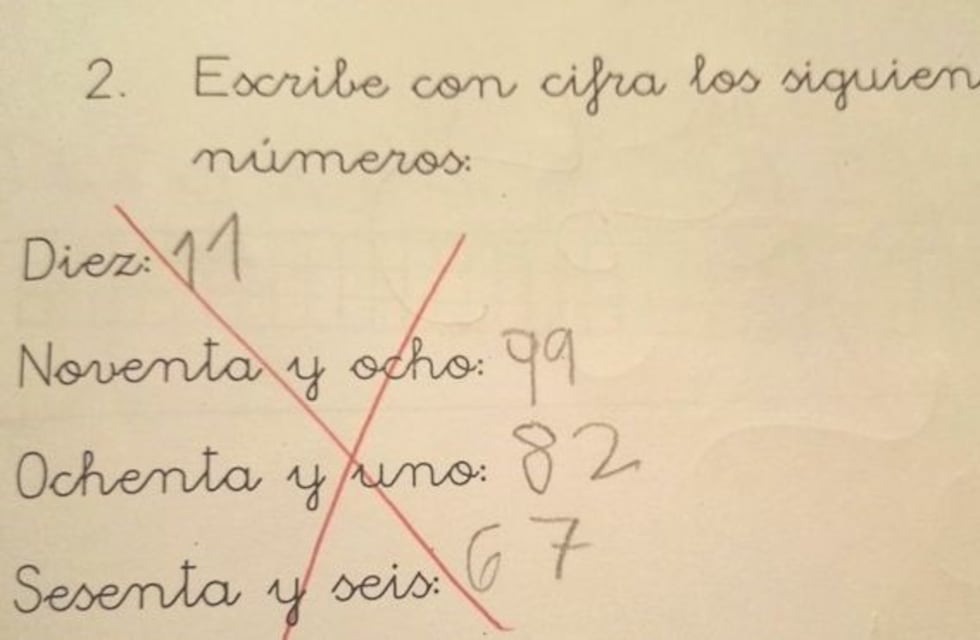 2. Escribe con cifra los siguien
números:
Diez: 11
Noventa y ocho: 99
Ochenta y uno: 82
Sesenta y seis: 67